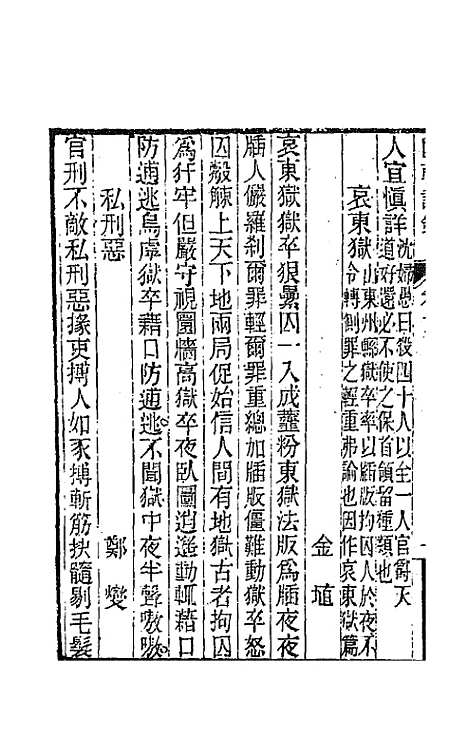 人宜慎詳沈婦愚曰殺四十人以全一人官禽天
道好還必不使之保首領留種類也
哀東獄山東州縣獄卒率以牐版拘囚人於夜不
令轉側罪之輕重弗論也因作哀東獄篇
金埴
哀東獄獄卒狠纍囚一入成虀粉東獄法版爲牐夜夜
牐人儼羅刹爾罪輕爾罪重總加牐版僵難動獄卒怒
囚觳觫上天下地兩局促始信人間有地獄古者拘囚
爲犴牢但嚴守視圜牆高獄卒夜臥圖逍遙動輒藉口
防逋逃烏虖獄卒藉口防逋逃不聞獄中夜半聲嗷嗷
私刑惡
鄭燮
官刑不敵私刑惡掾吏搏人如豕搏斬筋抉髓剔毛髮